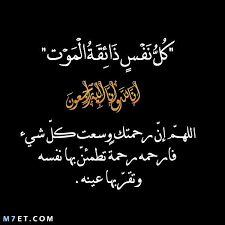 "كُلُّ نَفْسٍ ذَائِقَةُ الْمَوْت"
إنا لله وإنا إليه راجعون
اللهمّ إنّ رحمتك وسعت كلّ شيء
فارحمه رحمةً تطمئنّ بها نفسه
وتقرّ بها عينه .
M7ET.COM